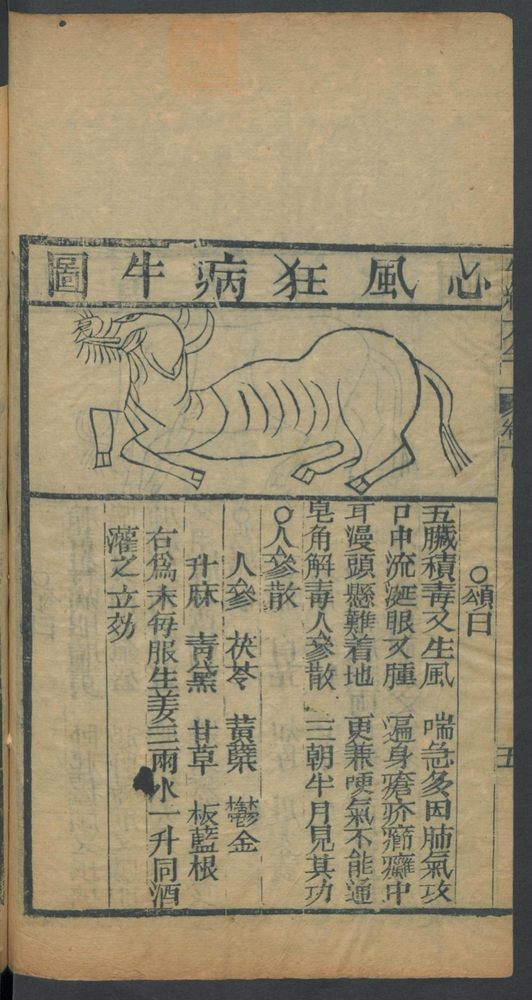 心風狂病牛圖
○頌曰
五臟積毒又生風　喘急多因肺氣攻
口中流涎眼又腫　遍身瘡疥癤癰中
耳漫頭懸難着地　更兼哽氣不能通
皂角解毒人參散　三朝半月見其功
○人參散
人參　茯苓　黃蘗　鬱金
升麻　青黛　甘草　板藍根
右為末每服生姜三兩水一升同酒
灌之立効
五